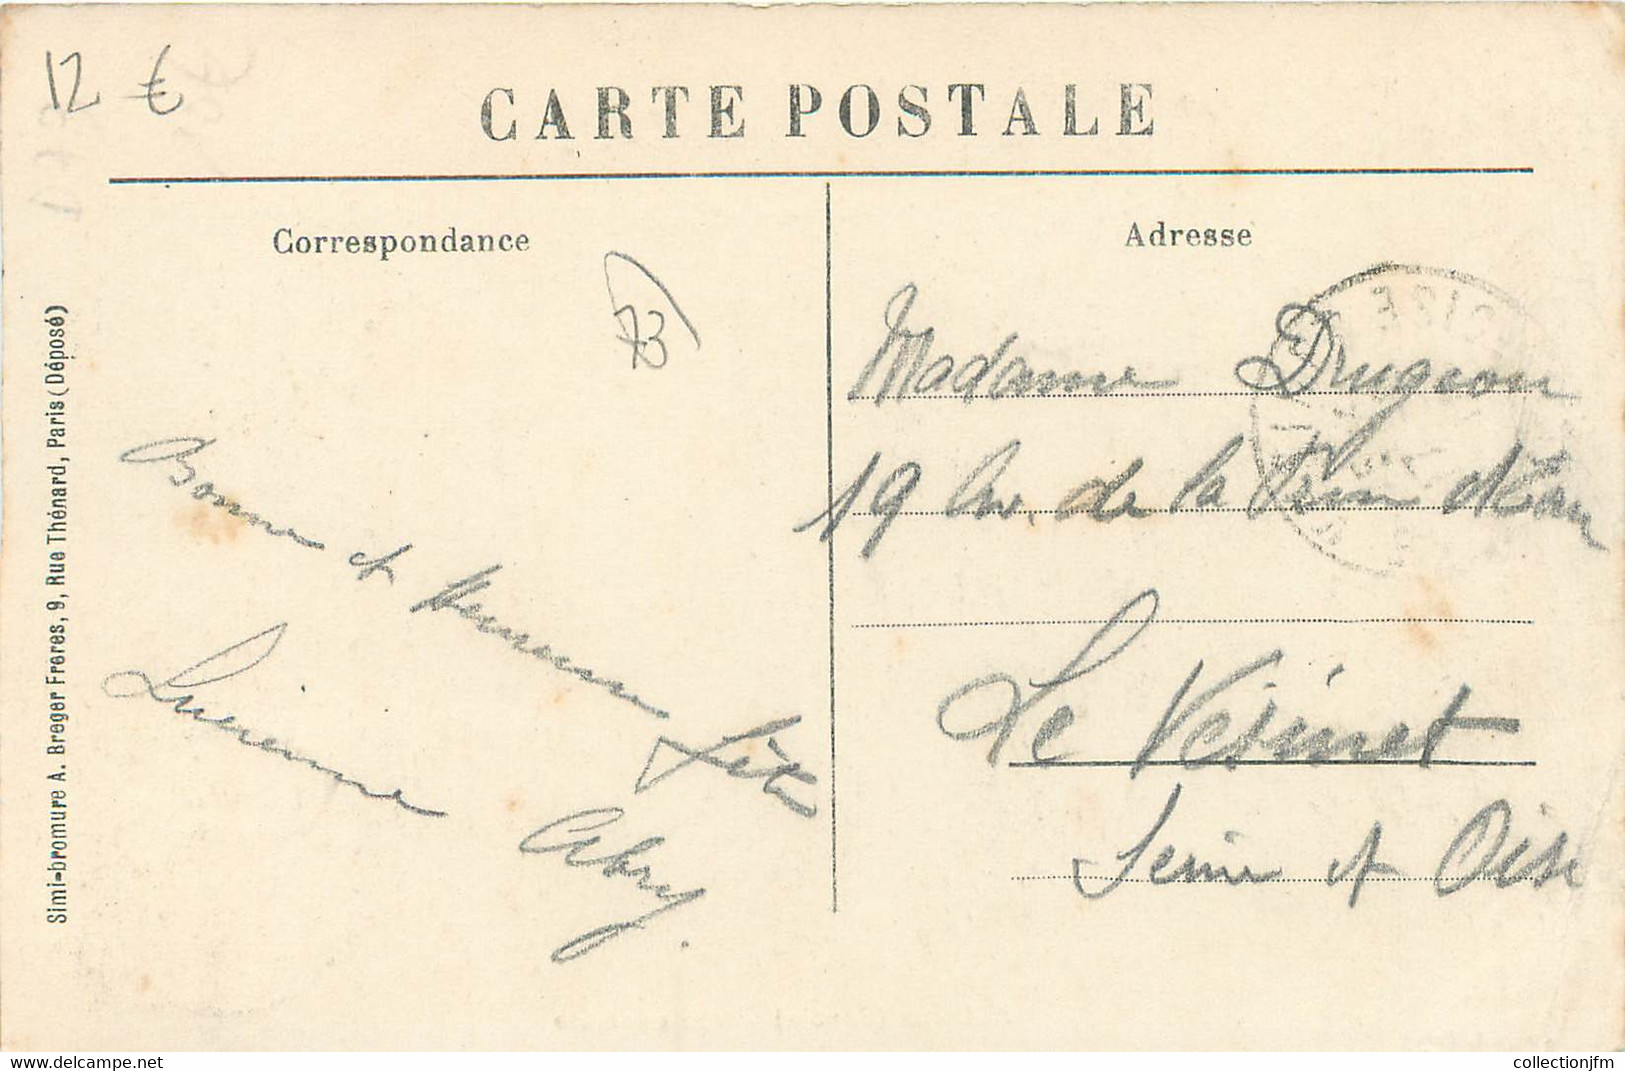 12 €
CARTE POSTALE
Correspondance
Adresse
73
Madame Drugeon
19 Av. de la Prise d'Eau
Le Vésinet
Seine et Oise
Bonne et Heureuse fête
Lucienne Abry.
Simi-bromure A. Breger Freres, 9, Rue Thénard, Paris (Déposé)
collectionjfm